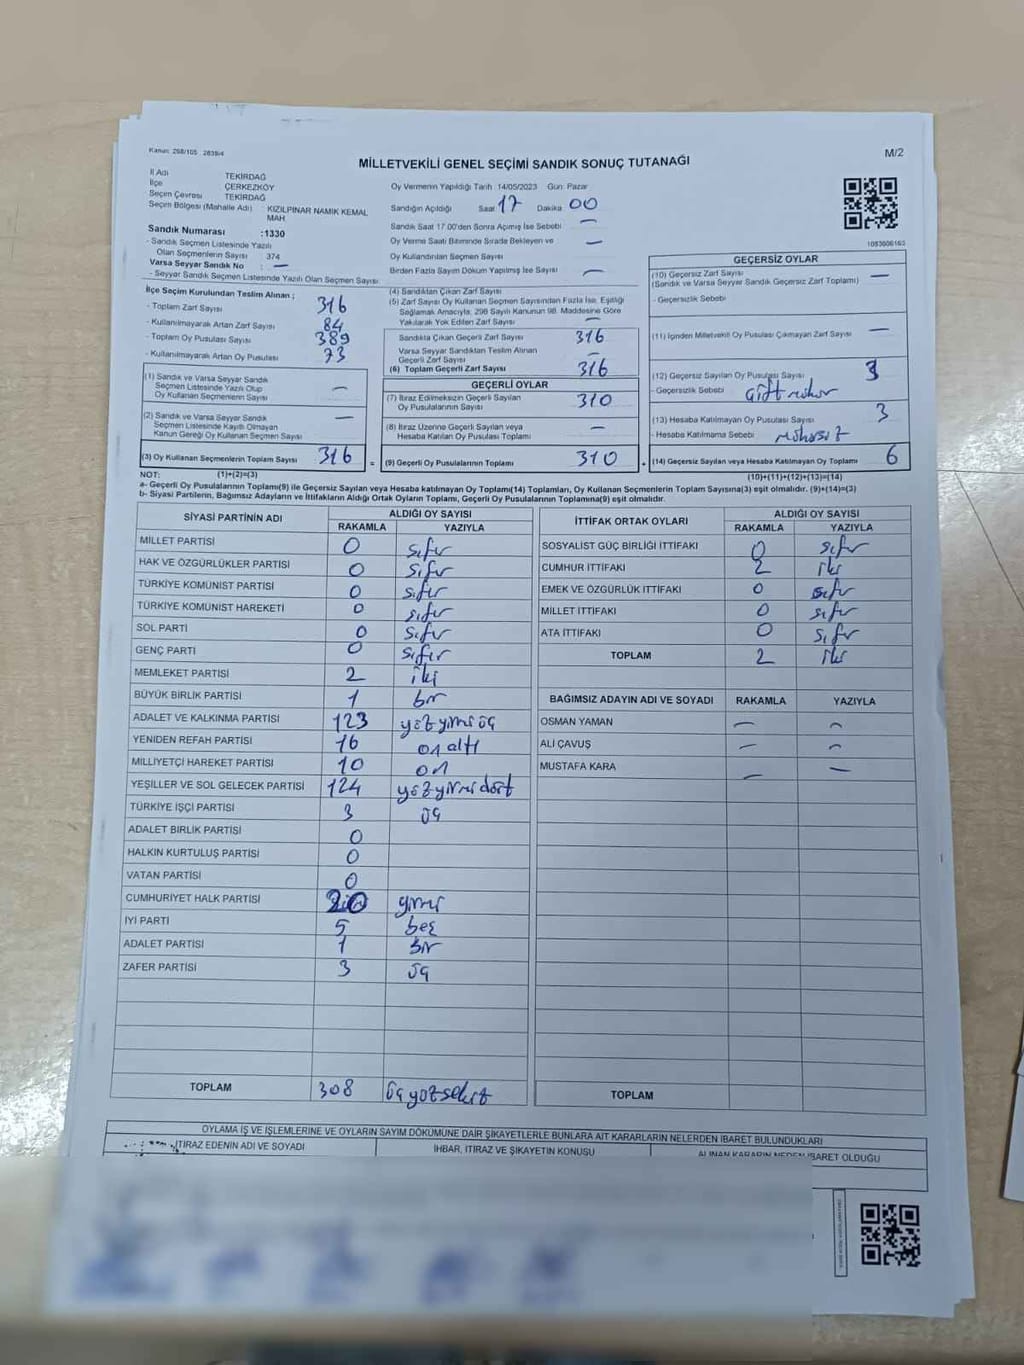 Kanun: 298/105 2839/4
M/2
MİLLETVEKİLİ GENEL SEÇİMİ SANDIK SONUÇ TUTANAĞI
İl Adı TEKİRDAĞ
İlçe ÇERKEZKÖY
Seçim Çevresi TEKİRDAĞ
Seçim Bölgesi (Mahalle Adı) : KIZILPINAR NAMIK KEMAL MAH
Sandık Numarası :1330
- Sandık Seçmen Listesinde Yazılı
Olan Seçmenlerin Sayısı 374
Varsa Seyyar Sandık No : —
- Seyyar Sandık Seçmen Listesinde Yazılı Olan Seçmen Sayısı
Oy Vermenin Yapıldığı Tarih 14/05/2023 Gün: Pazar
Sandığın Açıldığı Saat 17 Dakika 00
Sandık Saat 17.00'den Sonra Açılmış İse Sebebi —
Oy Verme Saati Bitiminde Sırada Bekleyen ve —
Oy Kullandırılan Seçmen Sayısı
Birden Fazla Sayım Döküm Yapılmış İse Sayısı —
1083606163
İlçe Seçim Kurulundan Teslim Alınan ;
- Toplam Zarf Sayısı 316
- Kullanılmayarak Artan Zarf Sayısı 84
- Toplam Oy Pusulası Sayısı 389
- Kullanılmayarak Artan Oy Pusulası 73
(1) Sandık ve Varsa Seyyar Sandık
Seçmen Listesinde Yazılı Olup
Oy Kullanan Seçmenlerin Sayısı —
(2) Sandık ve Varsa Seyyar Sandık
Seçmen Listesinde Kayıtlı Olmayan
Kanun Gereği Oy Kullanan Seçmen Sayısı —
(3) Oy Kullanan Seçmenlerin Toplam Sayısı 316
(1)+(2)=(3)
(4) Sandıktan Çıkan Zarf Sayısı
(5) Zarf Sayısı Oy Kullanan Seçmen Sayısından Fazla İse, Eşitliği
Sağlamak Amacıyla, 298 Sayılı Kanunun 98. Maddesine Göre
Yakılarak Yok Edilen Zarf Sayısı —
Sandıkta Çıkan Geçerli Zarf Sayısı 316
Varsa Seyyar Sandıktan Teslim Alınan
Geçerli Zarf Sayısı —
(6) Toplam Geçerli Zarf Sayısı 316
GEÇERLİ OYLAR
(7) İtiraz Edilmeksizin Geçerli Sayılan
Oy Pusulalarının Sayısı 310
(8) İtiraz Üzerine Geçerli Sayılan veya
Hesaba Katılan Oy Pusulası Toplamı —
= (9) Geçerli Oy Pusulalarının Toplamı 310
GEÇERSİZ OYLAR
(10) Geçersiz Zarf Sayısı —
(Sandık ve Varsa Seyyar Sandık Geçersiz Zarf Toplamı)
- Geçersizlik Sebebi
(11) İçinden Milletvekili Oy Pusulası Çıkmayan Zarf Sayısı —
(12) Geçersiz Sayılan Oy Pusulası Sayısı 3
- Geçersizlik Sebebi Çift mühür
(13) Hesaba Katılmayan Oy Pusulası Sayısı 3
- Hesaba Katılmama Sebebi mühürsüz
+ (14) Geçersiz Sayılan veya Hesaba Katılmayan Oy Toplamı 6
(10)+(11)+(12)+(13)=(14)
NOT:
a- Geçerli Oy Pusulalarının Toplamı(9) ile Geçersiz Sayılan veya Hesaba katılmayan Oy Toplamı(14) Toplamları, Oy Kullanan Seçmenlerin Toplam Sayısına(3) eşit olmalıdır. (9)+(14)=(3)
b- Siyasi Partilerin, Bağımsız Adayların ve İttifakların Aldığı Ortak Oyların Toplamı, Geçerli Oy Pusulalarının Toplamına(9) eşit olmalıdır.
SİYASİ PARTİNİN ADI ALDIĞI OY SAYISI
RAKAMLA YAZIYLA
MİLLET PARTİSİ 0 sıfır
HAK VE ÖZGÜRLÜKLER PARTİSİ 0 sıfır
TÜRKİYE KOMÜNİST PARTİSİ 0 sıfır
TÜRKİYE KOMÜNİST HAREKETİ 0 sıfır
SOL PARTİ 0 sıfır
GENÇ PARTİ 0 sıfır
MEMLEKET PARTİSİ 2 iki
BÜYÜK BİRLİK PARTİSİ 1 bir
ADALET VE KALKINMA PARTİSİ 123 yüz yirmi üç
YENİDEN REFAH PARTİSİ 16 on altı
MİLLİYETÇİ HAREKET PARTİSİ 10 on
YEŞİLLER VE SOL GELECEK PARTİSİ 124 yüz yirmi dört
TÜRKİYE İŞÇİ PARTİSİ 3 üç
ADALET BİRLİK PARTİSİ 0
HALKIN KURTULUŞ PARTİSİ 0
VATAN PARTİSİ 0
CUMHURİYET HALK PARTİSİ 20 yirmi
İYİ PARTİ 5 beş
ADALET PARTİSİ 1 bir
ZAFER PARTİSİ 3 üç
TOPLAM 308 üç yüz sekiz
İTTİFAK ORTAK OYLARI ALDIĞI OY SAYISI
RAKAMLA YAZIYLA
SOSYALİST GÜÇ BİRLİĞİ İTTİFAKI 0 sıfır
CUMHUR İTTİFAKI 2 iki
EMEK VE ÖZGÜRLÜK İTTİFAKI 0 sıfır
MİLLET İTTİFAKI 0 sıfır
ATA İTTİFAKI 0 sıfır
TOPLAM 2 iki
BAĞIMSIZ ADAYIN ADI VE SOYADI RAKAMLA YAZIYLA
OSMAN YAMAN — —
ALİ ÇAVUŞ — —
MUSTAFA KARA — —
TOPLAM
OYLAMA İŞ VE İŞLEMLERİNE VE OYLARIN SAYIM DÖKÜMÜNE DAİR ŞİKAYETLERLE BUNLARA AİT KARARLARIN NELERDEN İBARET BULUNDUKLARI
İTİRAZ EDENİN ADI VE SOYADI İHBAR, İTİRAZ VE ŞİKAYETİN KONUSU ALINAN KARARIN NEDEN İBARET OLDUĞU